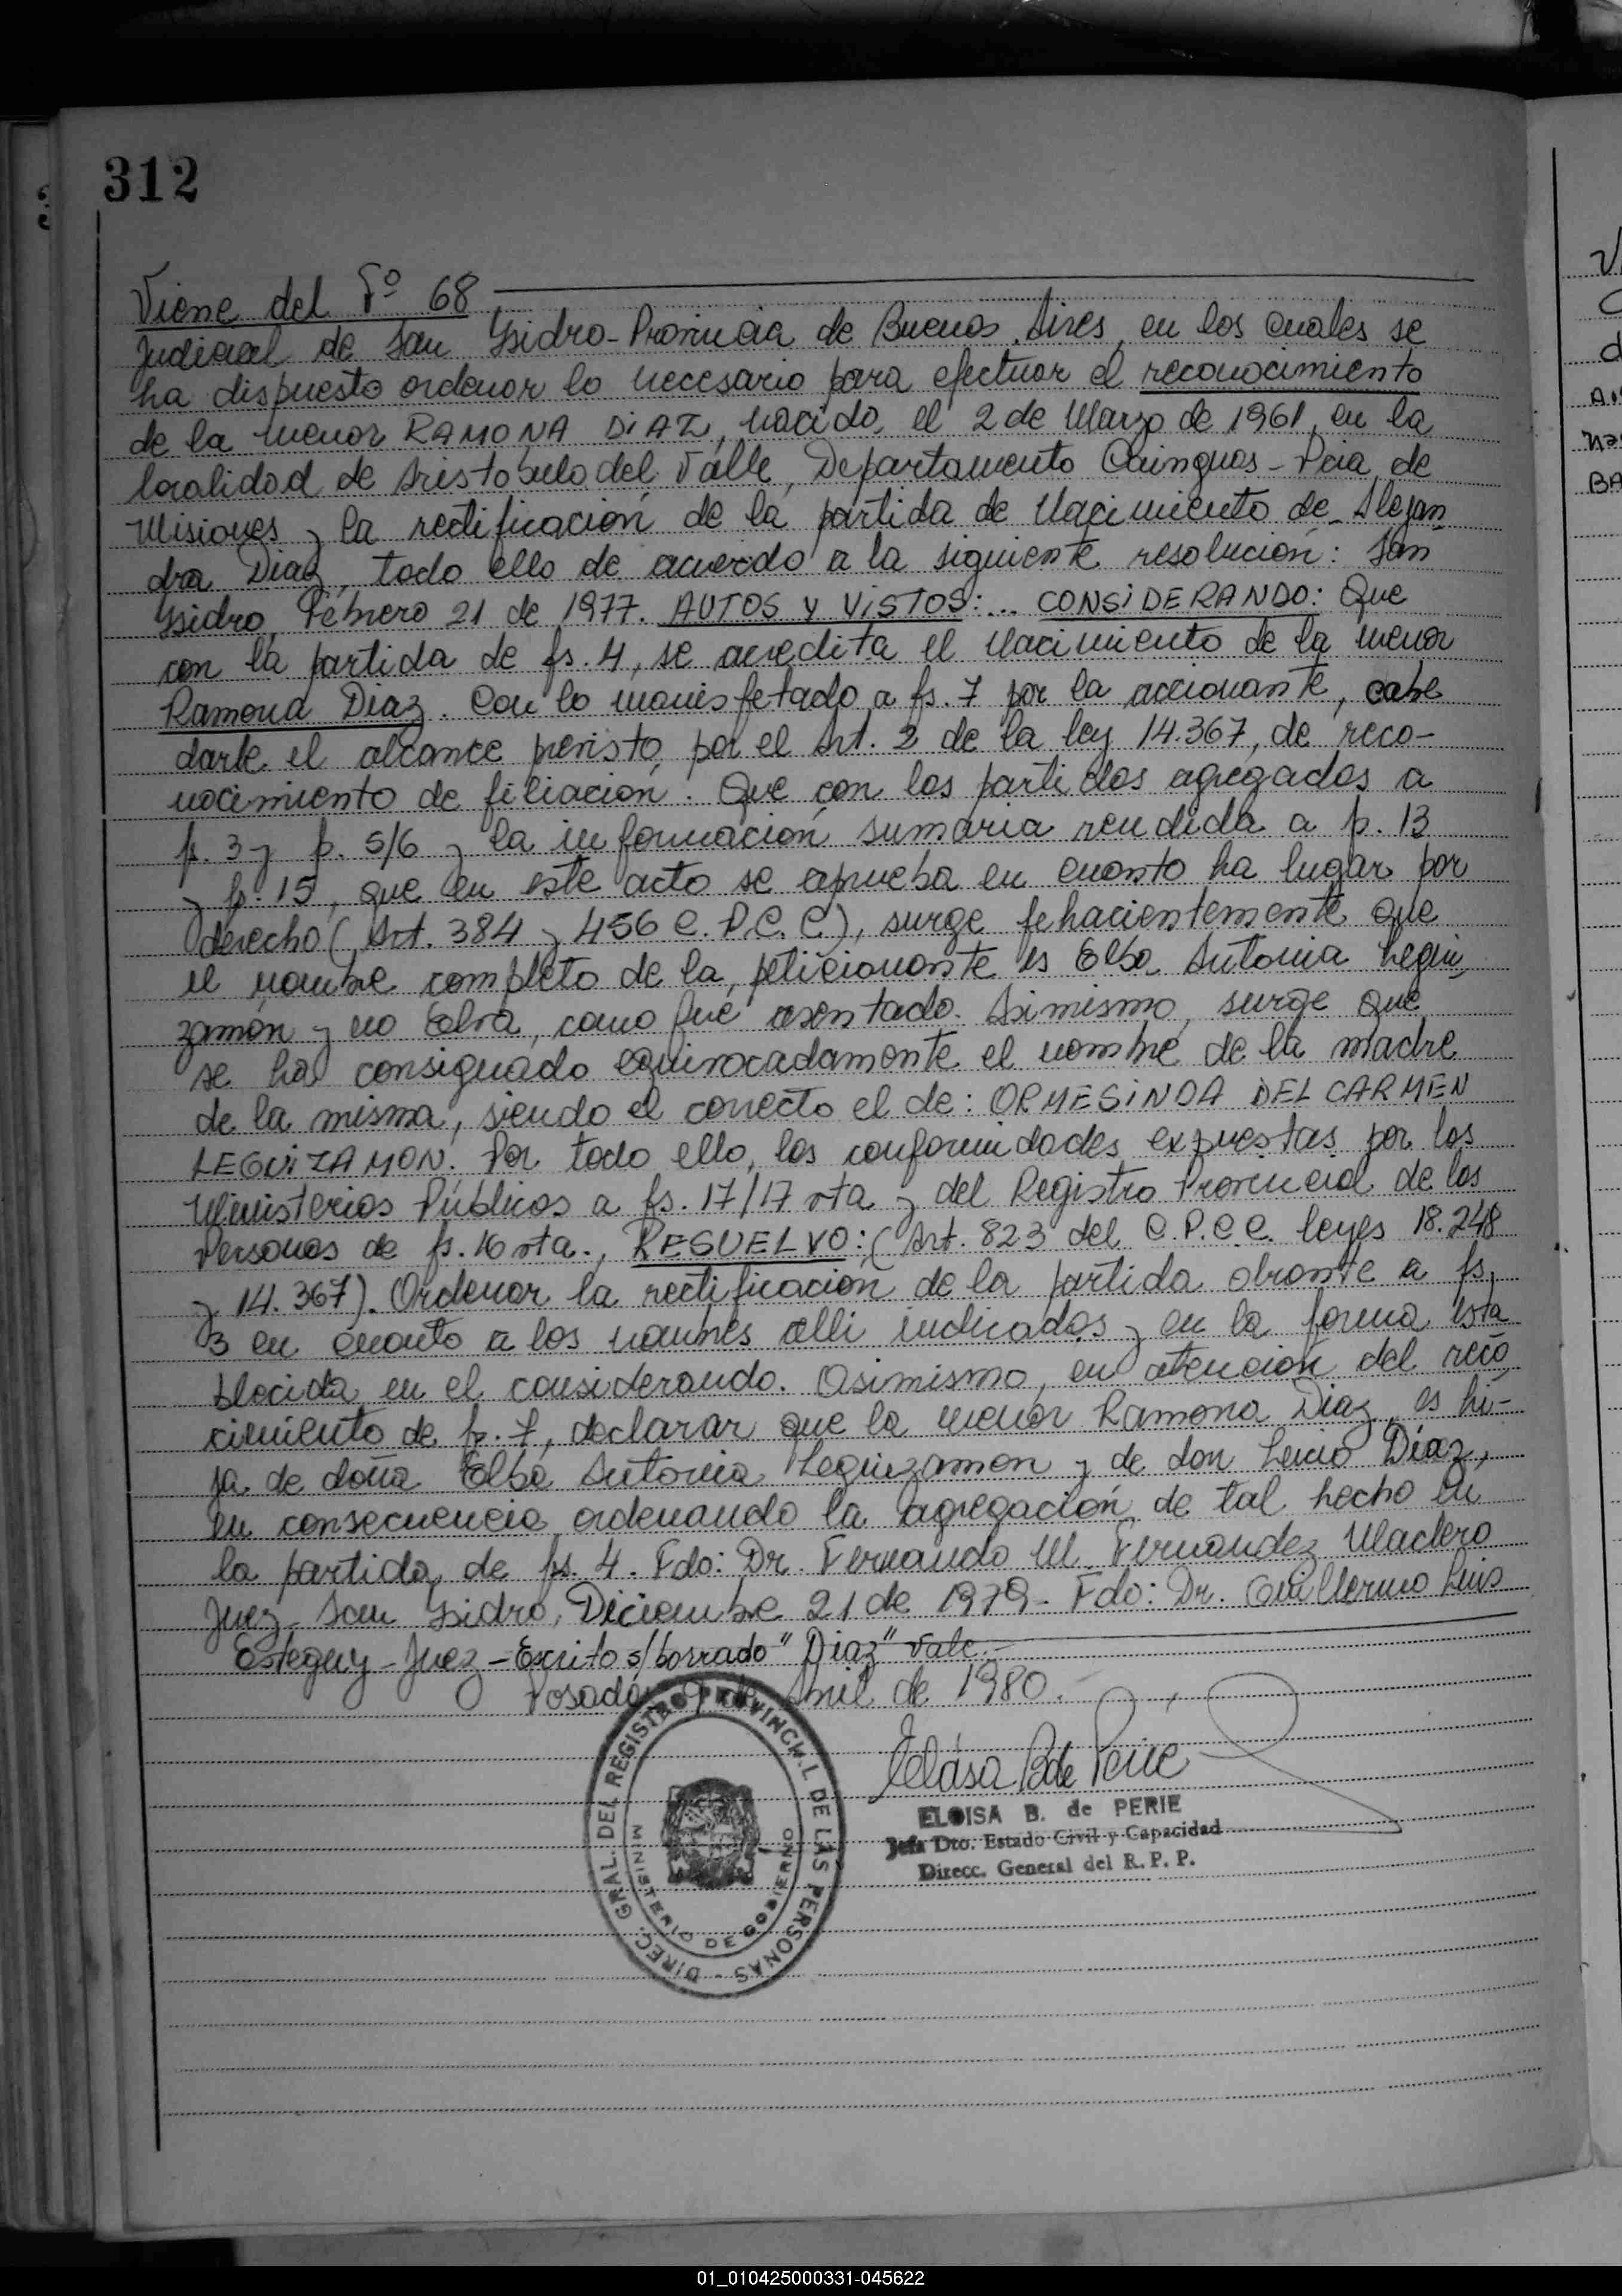 312
Viene del Fº 68
Judicial de San Ysidro-Provincia de Buenos Aires, en los cuales se
ha dispuesto ordenar lo necesario para efectuar el reconocimiento
de la menor RAMONA DIAZ, nacida el 2 de Marzo de 1961, en la
localidad de Aristobulo del Valle, Departamento Cainguas-Pcia de
Misiones y la rectificación de la partida de Nacimiento de Alejan
dra Diaz, todo ello de acuerdo a la siguiente resolución: San
Ysidro, Febrero 21 de 1977. AUTOS Y VISTOS:... CONSIDERANDO: Que
con la partida de fs. 4, se acredita el nacimiento de la menor
Ramona Diaz. Con lo manisfetado a fs. 7 por la accionante, cabe
darle el alcance previsto por el Art. 2 de la ley 14.367, de reco-
nocimiento de filiación. Que con las partidas agregadas a
fs. 3 y fs. 5/6 y la información sumaria rendida a fs. 13
y fs. 15, que en este acto se aprueba en cuanto ha lugar por
derecho (Art. 384 y 456 C.P.C.C), surge fehacientemente que
el nombre completo de la peticionante es Elba Antonia Legui
zamón y no Elva, como fué asentado. Asimismo, surge que
se ha consignado equivocadamente el nombre de la madre
de la misma, siendo el correcto el de: ORMESINDA DEL CARMEN
LEGUIZAMON. Por todo ello, las conformidades expuestas por los
Ministerios Públicos a fs. 17/17 vta y del Registro Provincial de las
Personas de fs. 16 vta., RESUELVO: (Art. 823 del C.P.C.C. leyes 18.248
y 14.367). Ordenar la rectificación de la partida obrante a fs.
3 en cuanto a los nombres allí indicados y en la forma esta
blecida en el considerando. Asimismo, en atención del reco
cimiento de fs. 7, declarar que la menor Ramona Diaz es hi-
ja de doña Elba Antonia Leguizamon y de don Lucio Díaz,
en consecuencia ordenando la agregación de tal hecho en
la partida de fs. 4. Fdo: Dr. Fernando M. Fernandez Madero
Juez- San Ysidro, Diciembre 21 de 1979- Fdo: Dr. Guillermo Luis
Esteguy-Juez-Escrito s/borrado "Diaz" Vale.-
Posadas, 9 de Abril de 1980.-
Eloísa B de Perié
ELOISA B. de PERIE
Jefa Dto. Estado Civil y Capacidad
Direcc. General del R. P. P.
DIREC. GRAL. DEL REGISTRO PROVINCIAL DE LAS PERSONAS
MINISTERIO DE GOBIERNO
01_010425000331-045622